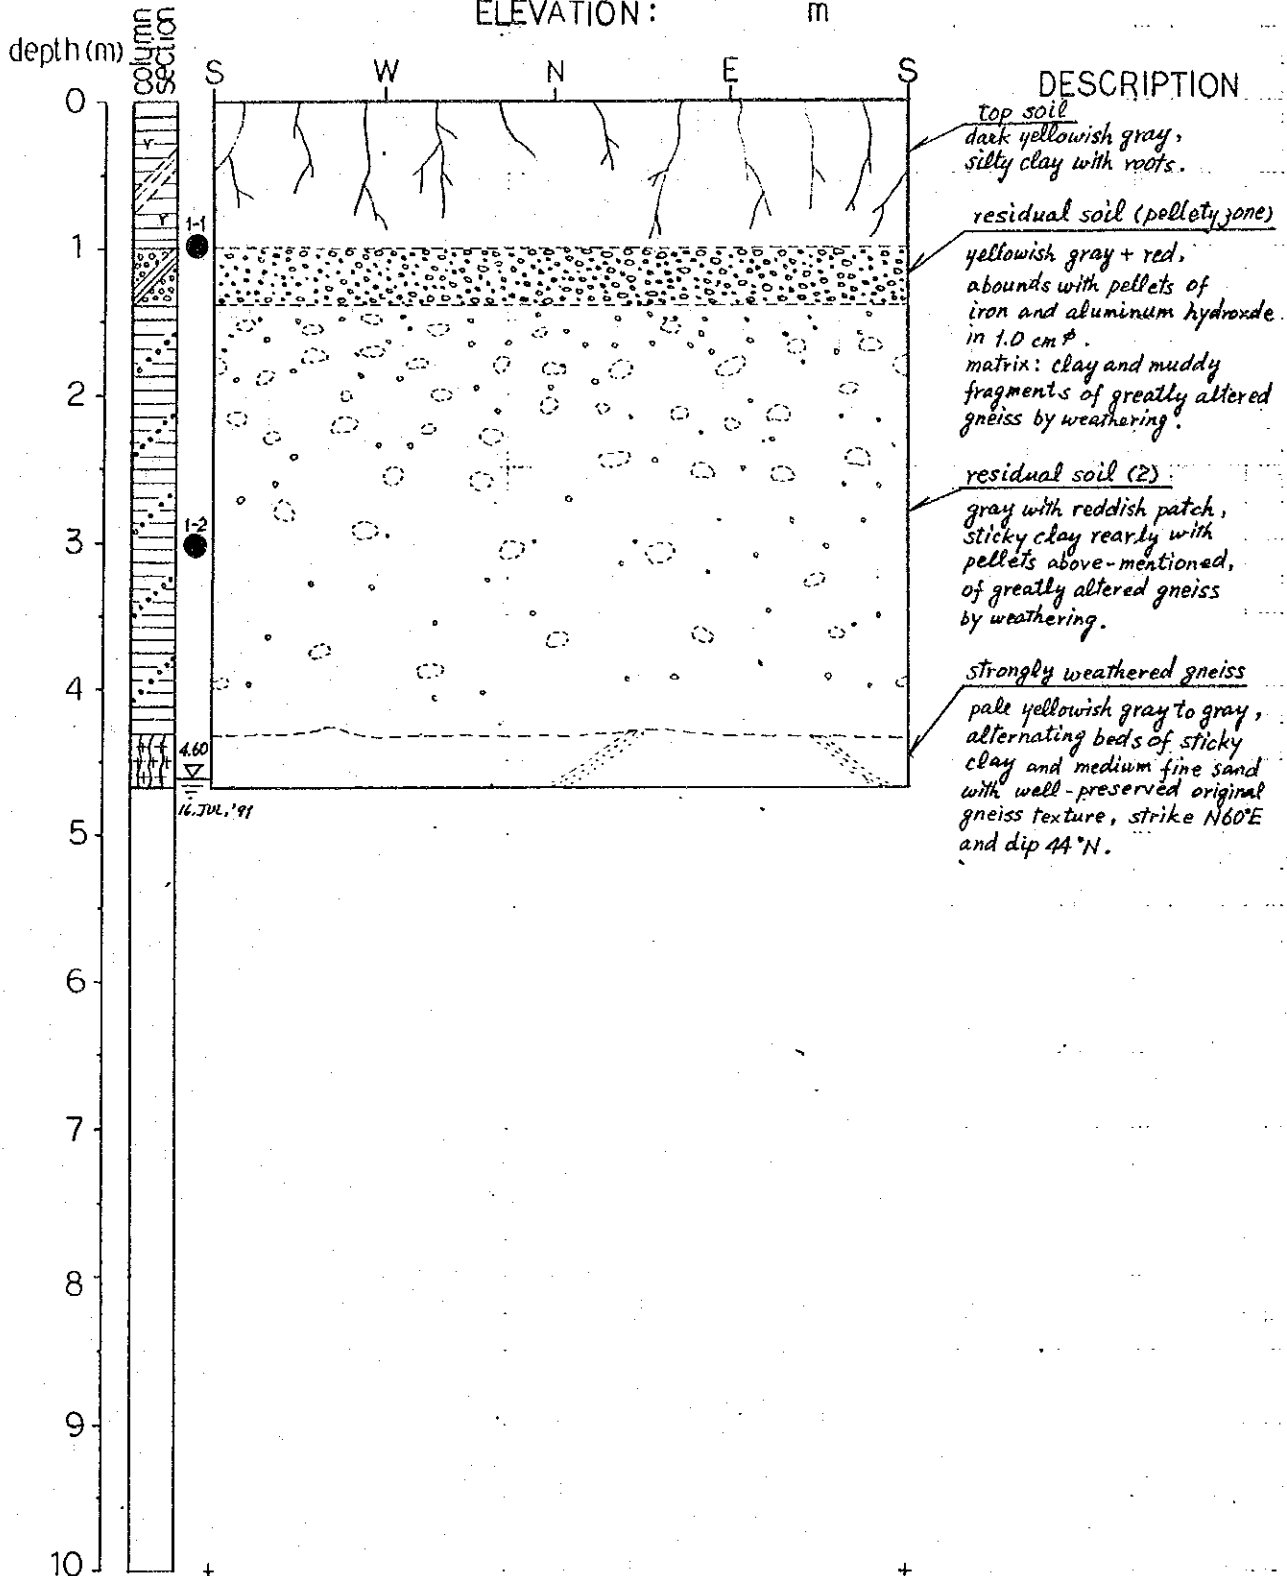 ELEVATION: m
depth (m)
column section
S W N E S
DESCRIPTION
0
1
2
3
4
5
6
7
8
9
10
1-1
1-2
4.60
16.JUL,'91
top soil
dark yellowish gray,
silty clay with roots.
residual soil (pellety zone)
yellowish gray + red,
abounds with pellets of
iron and aluminum hydroxde
in 1.0 cm φ.
matrix: clay and muddy
fragments of greatly altered
gneiss by weathering.
residual soil (2)
gray with reddish patch,
sticky clay rearly with
pellets above-mentioned,
of greatly altered gneiss
by weathering.
strongly weathered gneiss
pale yellowish gray to gray,
alternating beds of sticky
clay and medium fine sand
with well-preserved original
gneiss texture, strike N60°E
and dip 44°N.